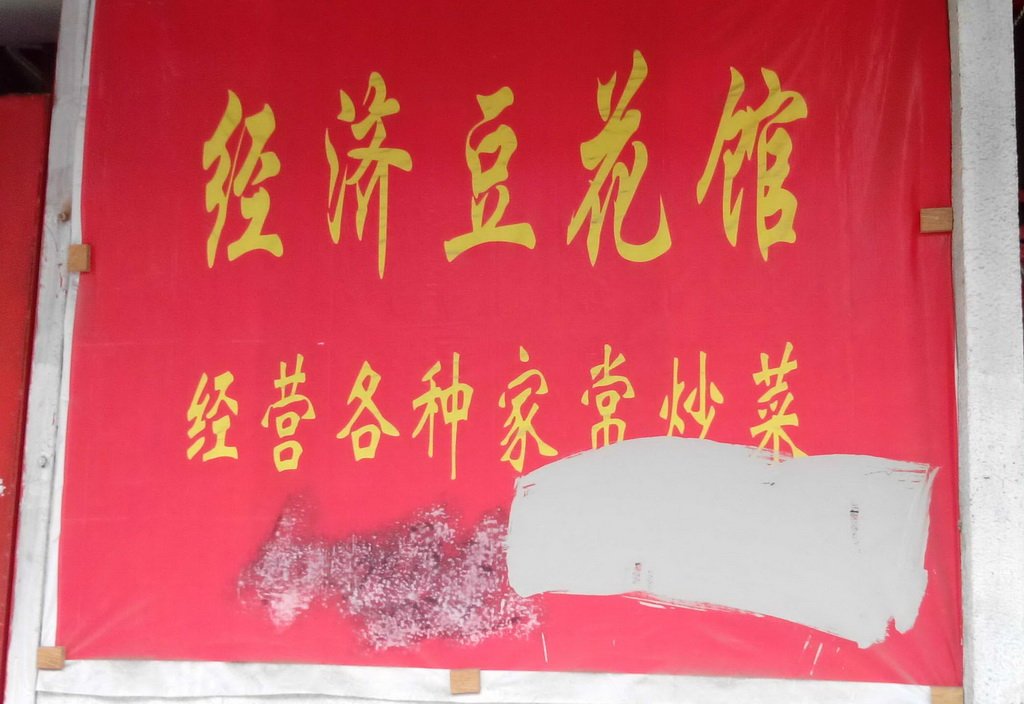 经济豆花馆
经营各种家常炒菜